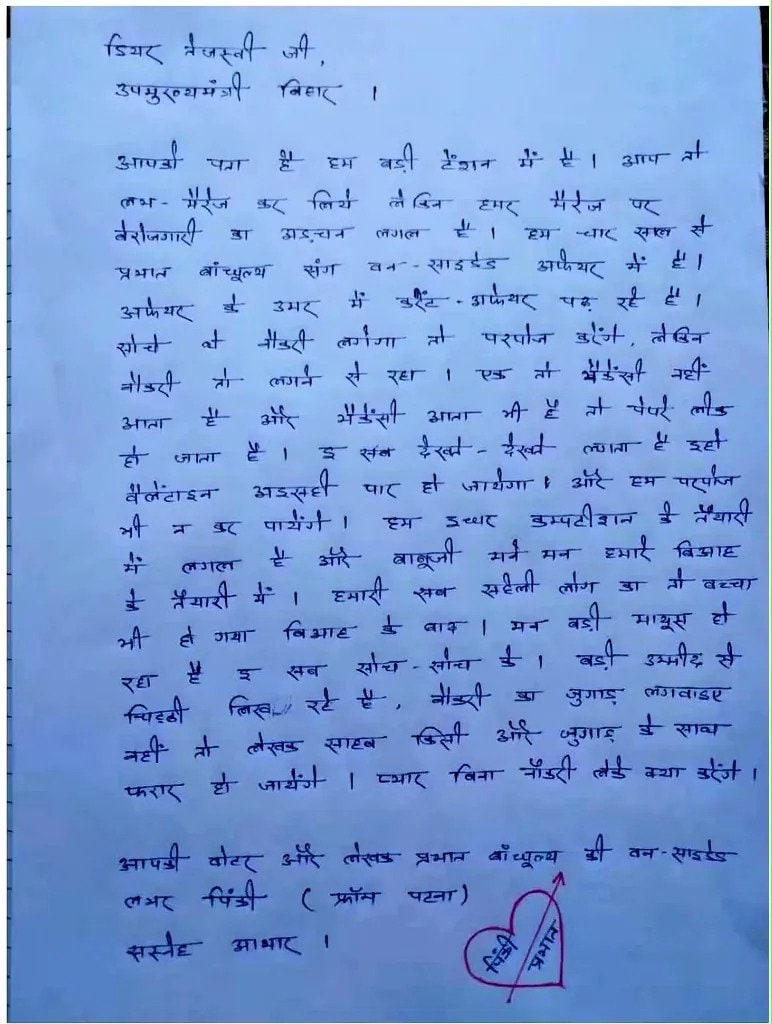 डियर तेजस्वी जी,
उपमुख्यमंत्री बिहार ।
आपको पता है हम बड़ी टेंशन में है । आप तो
लभ - मैरेज कर लिये लेकिन हमर मैरेज पर
बेरोजगारी का अड़चन लगल है । हम चार साल से
प्रभात बांधुल्य संग वन - साइडेड अफेयर में है ।
अफेयर के उमर में करेंट - अफेयर पढ़ रहे है ।
सोचे थे नौकरी लगेगा तो परपोज करेंगे, लेकिन
नौकरी तो लगने से रहा । एक तो भैकेंसी नहीं
आता है और भैकेंसी आता भी है तो पेपरे लीक
हो जाता है । इ सब देखते - देखते लगता है इहो
वैलेंटाइन अइसही पार हो जायेगा । और हम परपोज
भी न कर पायेंगे । हम इधर कम्पटीशन के तैयारी
में लगल है और बाबूजी मने मन हमारे बिआह
के तैयारी में । हमारी सब सहेली लोग का तो बच्चा
भी हो गया बिआह के बाद । मन बड़ी मायूस हो
रहा है इ सब सोच - सोच के । बड़ी उम्मीद से
चिट्ठी लिख रहे है, नौकरी का जुगाड़ लगवाइए
नहीं तो लेखक साहब किसी और जुगाड़ के साथ
फरार हो जायेंगे । प्यार बिना नौकरी लेके क्या करेंगे ।
आपकी वोटर और लेखक प्रभात बांधुल्य की वन - साइडेड
लभर पिंकी ( फ्रॉम पटना)
सस्नेह आभार ।
पिंकी
प्रभात